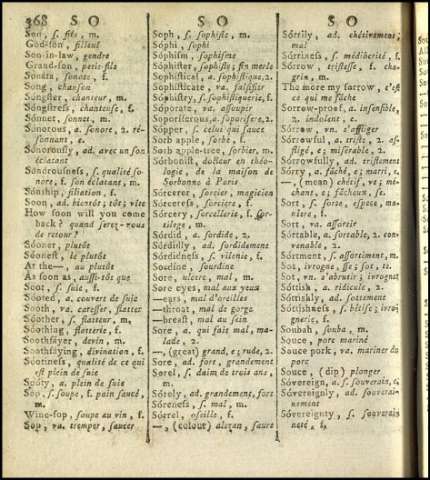 368 S O S O S O
Son, ſ. fils, m.
God-ſon, filleul
Son-in-law, gendre
Grand-ſon, petit-fils
Sonáta, ſonate, f.
Song, chanſon
Sóngſter, chanteur, m.
Songſtreſs, chanteuſe, f.
Sónnet, ſonnet, m.
Sonorous, a. ſonore, 2. ré-
ſonnant, e.
Sonórouſly, ad. avec un ſon
éclatant
Sonórouſneſs, ſ. qualité ſo-
nore, f. ſon éclatant, m.
Sónſhip, filiation, f.
Soon, ad. bientôt; tôt; vîte
How ſoon will you come
back? quand ſerez-vous
de retour?
Sóoner, plutôt
Sóoneſt, le plutôt
At the—, au plutôt
As ſoon as, auſſi-tôt que
Soot, ſ. ſuie, f.
Sóoted, a. couvert de ſuie
Sooth, va. careſſer, flatter
Sóother, ſ. flatteur, m.
Sóothing, flatterie, f.
Sóothſayer, devin, m.
Sóothſaying, divination, f.
Sóotineſs, qualité de ce qui
eſt plein de ſuie
Sóoty, a. plein de ſuie
Sop, ſ. ſoupe, f. pain ſaucé,
m.
Wine-ſop, ſoupe au vin, f.
Sop, va. tremper, ſaucer
Soph, ſ. ſophiſte, m.
Sóphi, ſophi
Sóphiſm, ſophiſme
Sóphiſter, ſophiſte; fin merle
Sophíſtical, a. ſophiſtique, 2.
Sophíſticate, va. falſifier
Sóphiſtry, ſ. ſophiſtiquerie, f.
Sóporate, va. aſſoupir
Soporíferous, a. ſoporifere, 2.
Sópper, ſ. celui qui ſauce
Sorb apple, ſorbe, f.
Sorb apple-tree, ſorbier, m.
Sórboniſt, docteur en théo-
logie, de la maiſon de
Sorbonne à Paris
Sórcerer, ſorcier, magicien
Sórcereſs, ſorcière, f.
Sórcery, ſorcellerie, f. ſor-
tilege, m.
Sórdid, a. ſordide, 2.
Sórdidly, ad. ſordidement
Sórdidneſs, ſ. vilenie, f.
Sordine, ſourdine
Sore, ulcere, mal, m.
Sore eyes, mal aux yeux
—ears, mal d'oreilles
—throat, mal de gorge
—breaſt, mal au ſein
Sore, a. qui fait mal, ma-
lade, 2.
—, (great) grand, e; rude, 2.
Sore, ad. fort, grandement
Sorel, ſ. daim de trois ans,
m.
Sórely, ad. grandement, fort
Sóreneſs, ſ. mal, m.
Sórel, oſeille, f.
—, (colour) alezan, ſaure
Sórrily, ad. chétivement;
mal
Sórrineſs, ſ. médiocrité, f.
Sórrow, triſteſſe, f. cha-
grin, m.
The more my ſorrow, c'eſt
ce qui me fâche
Sorrow-proof, a. inſenſible,
2. indolent, e.
Sórrow, vn. s'affliger
Sórrowful, a. triſte; 2. af-
fligé, e; miſérable, 2.
Sórrowfully, ad. triſtement
Sórry, a. fâché, e; marri, e.
—, (mean) chétif, ve; mé-
chant, e; fâcheux, ſe.
Sort, ſ. ſorte, eſpece, ma-
nière, f.
Sort, va. aſſortir
Sórtable, a. ſortable, 2. con-
venable, 2.
Sórtment, ſ. aſſortiment, m.
Sot, ivrogne, ſſe; ſot, te.
Sot, vn. s'abrutir; ivrogner
Sóttiſh, a. ridicule, 2.
Sóttiſhly, ad. ſottement
Sóttiſhneſs, ſ. bêtiſe; ivro-
gnerie, f.
Soubah, ſouba, m.
Souce, porc mariné
Souce pork, va. mariner du
porc
Souce, (dip) plonger
Sóvereign, a. ſ. ſouverain, e.
Sóvereignly, ad. ſouverai-
nement
Sóvereignty, ſ. ſouverai-
neté, f.